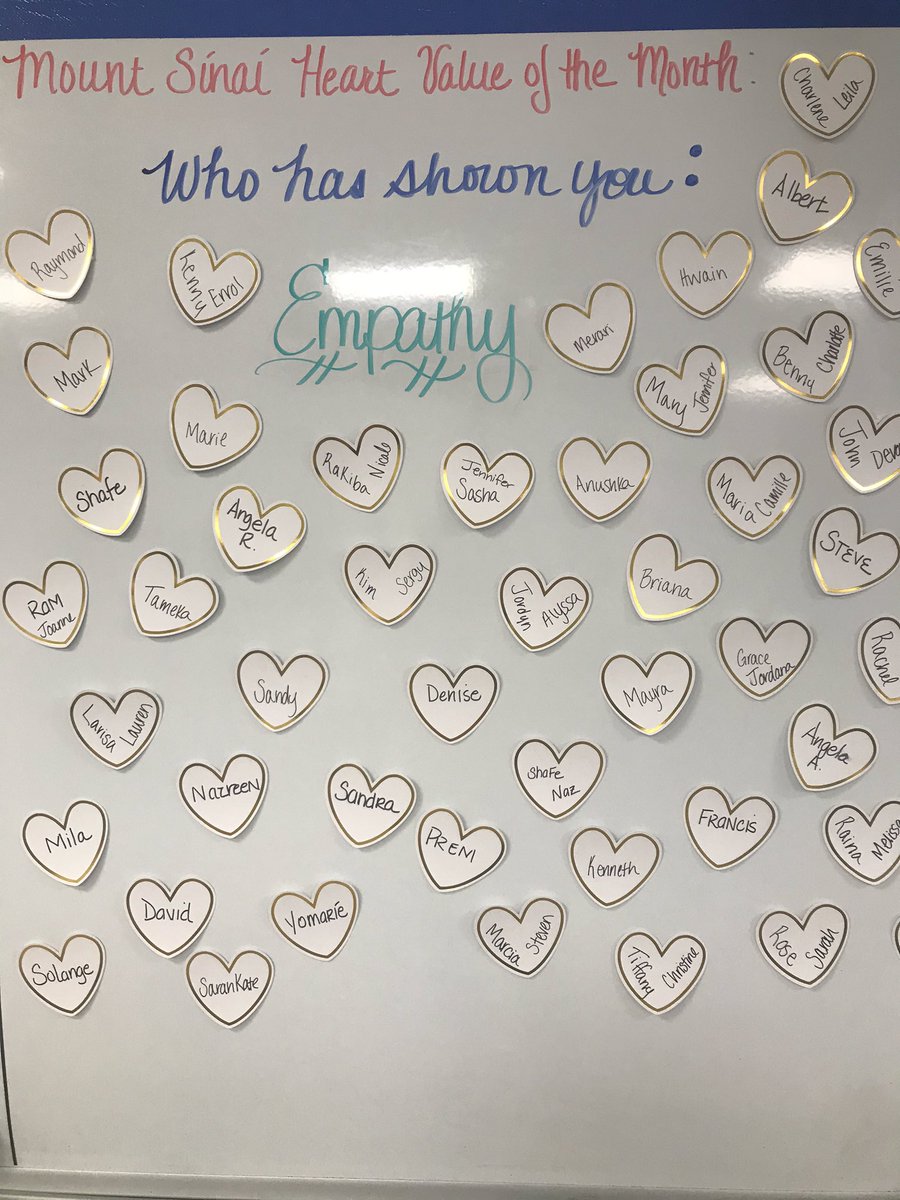 Mount Sinai Heart Value of the Month:
Who has shown you:
Empathy
Charlene Leila
Albert
Raymond
Kenny Errol
Hwain
Emilie
Merari
Mark
Mary Jennifer
Benny Charlotte
Marie
Rakiba Nicole
Jennifer
Sasha
Anushka
Maria Camille
John
Shafe
Angela
R.
Kim Sergy
Briana
STEVE
Ram
Joanne
Tameka
Jordyn Alyssa
Grace
Jordana
Rachel
Sandy
Denise
Mayra
Larisa Lauren
Angela
A.
Nazreen
Sandra
Shafe
Naz
FRANCIS
Mila
PREM
Kenneth
Raina Melissa
David
Yomarie
Marcia Steven
Tiffany Christine
Rose Sarah
Solange
SaranKate